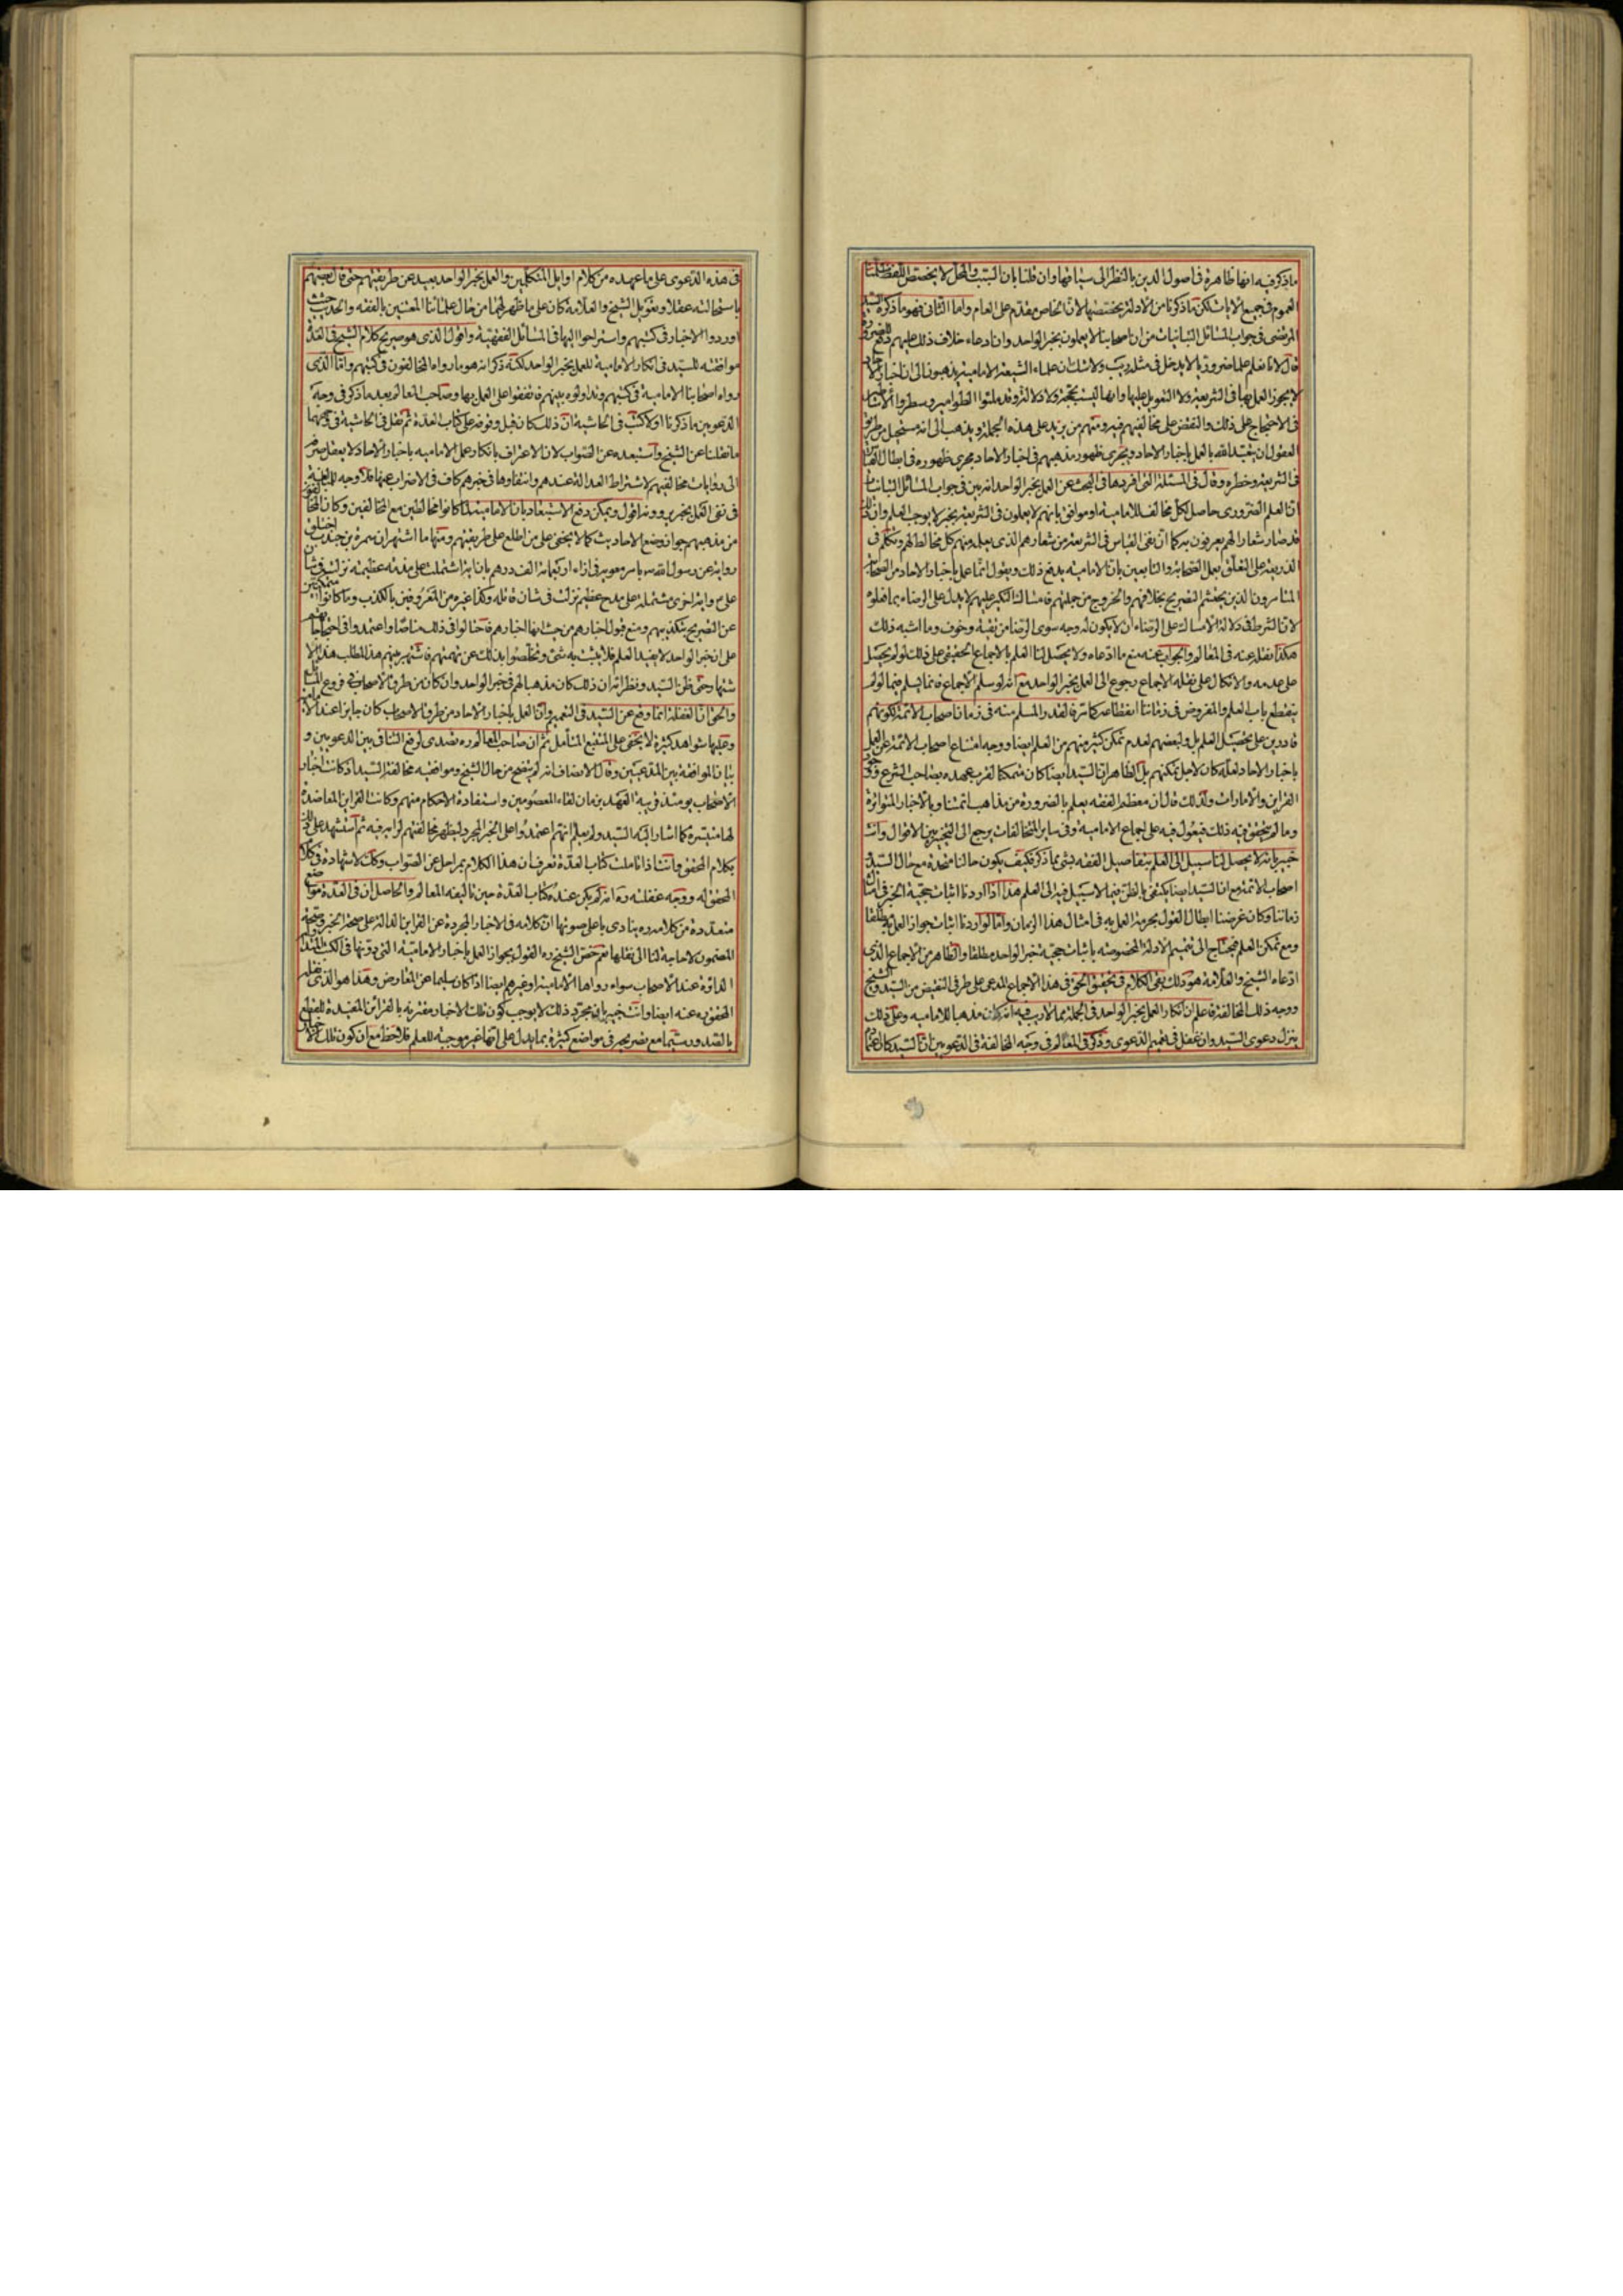 ما ذكر فيه انها ظاهرة في اصول الدين بالنظر الى سياقها وان قلنا بان السبب والمحل لا يخصص اللفظ
العموم في جميع الآيات لكن ما ذكرنا من الادلة يخصصها لان الخاص مقدم على العام واما الثاني فهو ما ذكره السيد
المرتضى في جواب المسائل التبانيات من ان اصحابنا لا يعملون بخبر الواحد وان ادعاء خلاف ذلك عليهم دفع للضرورة
قال لانا نعلم علما ضروريا لا يدخل في مثله ريب ولا شك ان علماء الشيعة الامامية يذهبون الى ان اخبار الآحاد
لا يجوز العمل بها في الشريعة ولا التعويل عليها وانها ليست بحجة ولا دلالة وقد ملئوا الطوامير وسطروا الاساطير
في الاحتجاج على ذلك والنقض على مخالفيهم فيه ومنهم من يزيد على هذه الجملة ويذهب الى انه مستحيل من طريق
العقول ان يتعبد الله بالعمل باخبار الاحاد ويجري ظهور مذهبهم في اخبار الاحاد مجرى ظهوره في ابطال القياس
في الشريعة وخطره وقال في المسئلة التي افردها في البحث عن العمل بخبر الواحد انه بين في جواب المسائل التبانيات
ان العلم الضروري حاصل لكل مخالف للامامية او موافق بانهم لا يعملون في الشريعة بخبر لا يوجب العلم وان ذلك
قد صار شعارا لهم يعرفون به كما ان نفي القياس في الشريعة من شعارهم الذي يعلمه منهم كل مخالط لهم وتكلم في
الذريعة على التعلق بعمل الصحابة والتابعين بان الامامية يدفع ذلك ويقول انما عمل باخبار الاحاد من الصحابة
المتأمرون الذين يحتشم التصريح بخلافهم والخروج من جملتهم فامساك النكير عليهم لا يدل على الرضاء بما فعلوه
لان الشرط في دلالة الامساك على الرضاء ان لا يكون له وجه سوى الرضا من تقية وخوف وما اشبه ذلك
هكذا نقل عنه في المعالم والجواب عنه منع ما ادعاه ولا يحصل لنا العلم بالاجماع الحقيقي على ذلك لو لم يحصل
على عدمه والاتكال على نقله الاجماع رجوع الى العمل بخبر الواحد مع انه لو سلم الاجماع فانما يسلم فيما لو لم
ينقطع باب العلم والمفروض في زماننا انقطاعه كما مر فالقدر المسلم منه في زمان اصحاب الائمة لكونهم
قادرين على تحصيل العلم بل ولبعضهم لعدم تمكن كثير منهم من العلم ايضا ووجه امتناع اصحاب الائمة عن العمل
باخبار الاحاد لعله كان لاجل تمكنهم بل الظاهر ان السيد ايضا كان متمكنا لقرب عهده بصاحب الشرع
القراين والامارات ولذلك قال ان معظم الفقه يعلم بالضرورة من مذاهب ائمتنا وبالاخبار المتواترة
وما لم يتحقق فيه ذلك فيعول فيه على اجماع الامامية وفي ساير المتخالفات يرجع الى التخيير بين الاقوال وانت
خبير بانه لا يحصل لنا سبيل الى العلم بتفاصيل الفقه بشئ مما ذكر فكيف يكون حالنا متحدة مع حال السيد
اصحاب الائمة مع ان السيد ايضا يكتفي بالظن فيما لا سبيل فيه الى العلم هذا اذا اردنا اثبات حجية الخبر في امثال
زماننا وكان غرضنا ابطال القول بحرمة العمل به في امثال هذا الزمان واما لو اردنا اثبات جواز العمل به مطلقا
ومع تمكن العلم فيحتاج الى تتميم الادلة المخصوصة باثبات حجية خبر الواحد مطلقا والظاهر من الاجماع الذي
ادعاه الشيخ والعلامة هو ذلك بقي الكلام في تحقيق الحق في هذا الاجماع المدعى على طرفي النقيض من السيد والشيخ
ووجه ذلك المخالفة فاعلم ان انكار العمل بخبر الواحد في الجملة مما لا ريب فيه انه كان مذهبا للامامية وعلى ذلك
ينزل دعوى السيد وان غفل في تعميم الدعوى وذكر في المعالم في وجه المخالفة في الدعويين ان السيد كان اعتماده
في هذه الدعوى على ما عهده من كلام اوايل المتكلمين والعمل بخبر الواحد بعيد عن طريقتهم حتى قال بعضهم
باستحالته عقلا وتعويل الشيخ والعلامة كان على ما ظهر لهما من حال علمائنا المعتنين بالفقه والحديث حيث
اوردوا الاخبار في كتبهم واستراحوا اليها في المسائل الفقهية واقول الذي هو صريح كلام الشيخ في العدة
موافقته للسيد في انكار الامامية للعمل بخبر الواحد لكنه ذكر انه هو ما رواه المخالفون في كتبهم واما الذي
رواه اصحابنا الامامية في كتبهم وتداولوه بينهم فاتفقوا على العمل بها وصاحب المعالم بعد ما ذكر في وجه
الدعويين ما ذكرنا اولا كتب في الحاشية ان ذلك كان قبل وقوفه على كتاب العدة ثم نقل في الحاشية في وجههما
ما نقلنا عن الشيخ واستبعده عن الصواب لان الاعتراف بانكار عمل الامامية باخبار الاحاد لا يعقل صرفه
الى روايات مخالفيهم لاشتراط العدالة عندهم وانتفاؤها في خبرهم كاف في الاضراب عنها فلا وجه للمبالغة
في نفي العمل بخبر يروونه اقول ويمكن دفع الاستبعاد بان الامامية لما كانوا مخالطين مع المخالفين وكان المخالفون
من مذهبهم جواز وضع الاحاديث كما لا يخفى على من اطلع على طريقتهم ومنها ما اشتهر ان سمرة بن جندب اختلق
رواية عن رسول الله ص بامر معوية في ازاء اربعمائة الف درهم بان اية اشتملت على مذمة عظيمة نزلت في شان
علي ع واية اخرى مشتملة على مدح عظيم نزلت في شان قاتله وكذا غيره من المعروفين بالكذب وما كانوا متمكنين
عن التصريح بتكذيبهم ومنع قبول اخبارهم من حيث انها اخبارهم فاحتالوا في ذلك مناصا واعتمدوا في احتجاجاتهم
على ان خبر الواحد لا يفيد العلم فلا يثبت به شئ وتخلصوا بذلك عن تهمتهم فاشتهر بينهم هذا المطلب
اشتهارا حتى ظن السيد ونظراؤه ان ذلك كان مذهبا لهم في خبر الواحد وان كان من طرق الاصحاب في فروع المسائل
والحق ان الغفلة انما وقع عن السيد في التعميم وان العمل باخبار الاحاد من طرق الاصحاب كان جايزا عند الامامية
وعليها شواهد كثيرة لا يخفى على المتتبع المتأمل ثم ان صاحب المعالم ره تصدى لرفع التنافي بين الدعويين و
بيان الموافقة بين المدعيين وقال الانصاف انه لم يتضح من حال الشيخ وموافقيه مخالفة السيد اذ كانت اخبار
الاصحاب يومئذ قريبة العهد بزمان لقاء المعصومين واستفادة الاحكام منهم وكانت القراين المعاضدة
لها متيسرة كما اشار اليه السيد ولم يعلم انهم اعتمدوا على الخبر المجرد ليظهر مخالفتهم لرأيه فيه ثم استشهد على ذلك
بكلام المحقق وانت اذا تاملت كتاب العدة تعرف ان هذا الكلام بمراحل عن الصواب وكذلك استشهاده في كلام
المحقق له ووجه غفلته ره انه لم يكن عنده كتاب العدة حين تاليفه المعالم والحاصل ان في العدة مواضع
متعددة من كلامه ره ينادي باعلى صوتها ان كلامه في الاخبار المجردة عن القراين الدالة على صحة الخبر وصحة
المضمون لا حاجة لنا الى نقلها نعم خص الشيخ ره القول بجواز العمل باخبار الامامية التي دونها في الكتب المتداولة
الدائرة عند الاصحاب سواء رواها الامامية او غيرهم ايضا اذا كان سليما عن المعارض وهذا هو الذي نقله
المحقق ره عنه ايضا وانت خبير بان مجرد ذلك لا يوجب كون تلك الاخبار مقترنة بالقرائن المفيدة للقطع
بالصدور سيما مع تصريحه في مواضع كثيرة بما يدل على انها غير موجبة للعلم فلاحظ مع ان كون تلك الاخبار